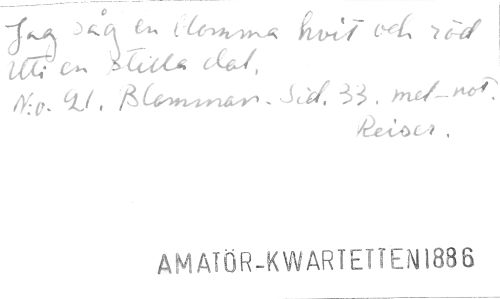 Jag såg en blomma hvit och röd
Uti en stilla dal.
N:o. 21. Blomman. Sid. 33. mel-not.
Reiser.
AMATÖR-KWARTETTEN 1886